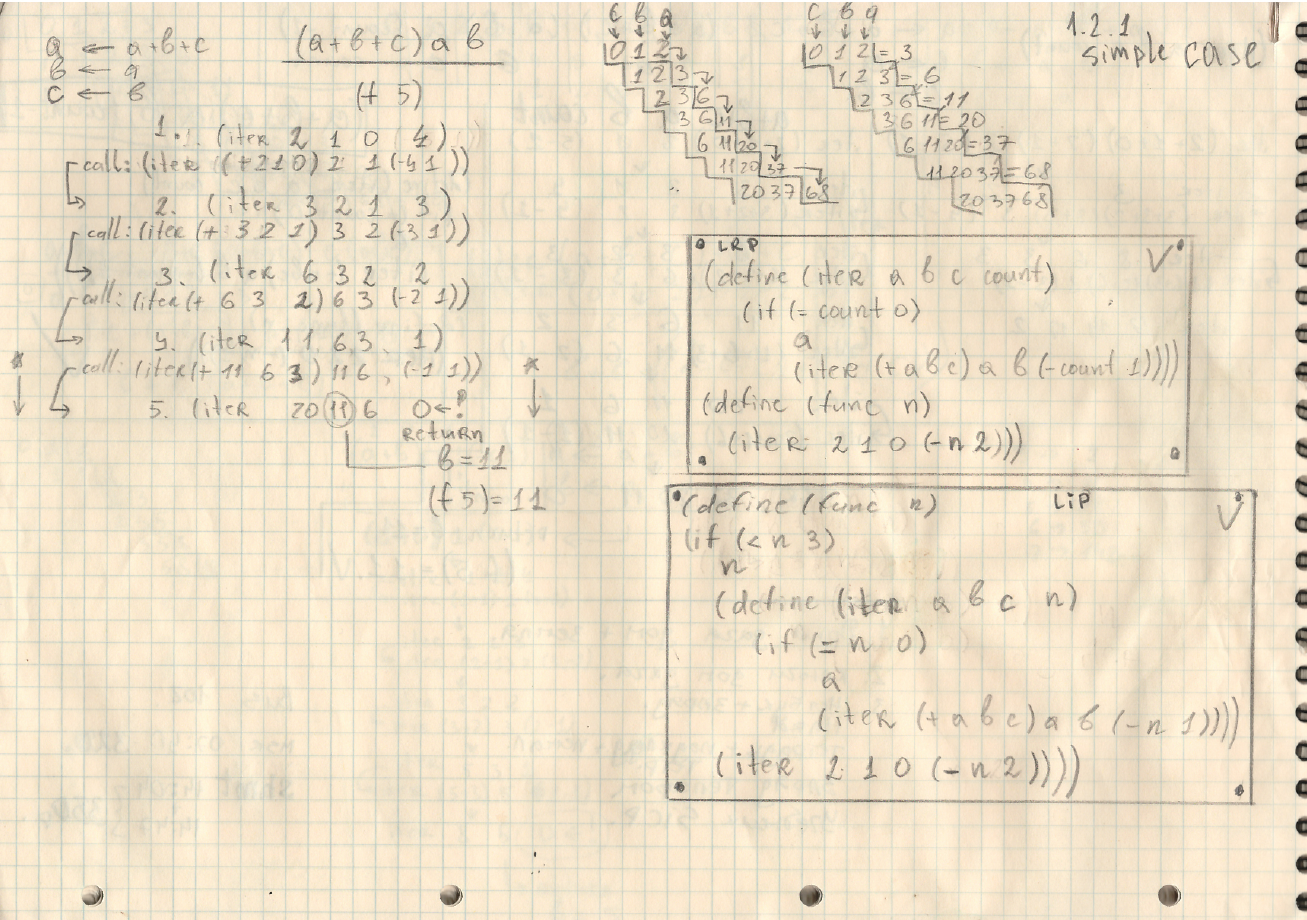 a ← a+b+c
b ← a
c ← b
(a+b+c) a b
(f 5)
1. (iter 2 1 0 4)
call: (iter (+210) 2 1 (-41))
2. (iter 3 2 1 3)
call: (iter (+ 3 2 1) 3 2 (-3 1))
3. (iter 6 3 2 2
call: (iter (+ 6 3 2) 6 3 (-2 1))
4. (iter 11 6 3 1)
* call: (iter (+ 11 6 3) 11 6 (-1 1)) *
5. (iter 20 11 6 0 ← !
return
b = 11
(f 5) = 11
c b a
0 1 2
1 2 3
2 3 6
3 6 11
6 11 20
11 20 37
20 37 68
c b a
0 1 2 = 3
1 2 3 = 6
2 3 6 = 11
3 6 11 = 20
6 11 20 = 37
11 20 37 = 68
20 37 68
1.2.1
simple case
LRP
(define (iter a b c count)
(if (= count 0)
a
(iter (+ a b c) a b (- count 1))))
(define (func n)
(iter 2 1 0 (- n 2)))
LiP
(define (func n)
(if (< n 3)
n
(define (iter a b c n)
(if (= n 0)
a
(iter (+ a b c) a b (- n 1))))
(iter 2 1 0 (- n 2))))